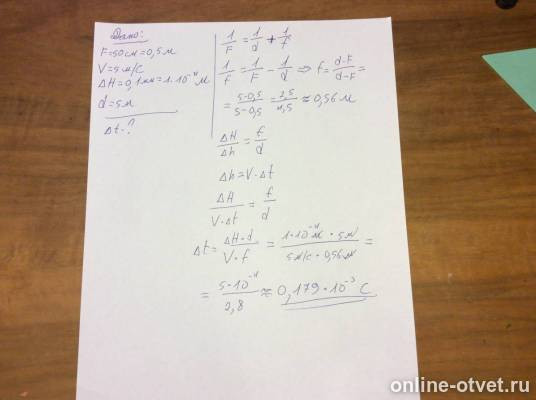 Дано:
F=50см=0,5м
V=5м/с
ΔH=0,1мм=1·10⁻⁴м
d=5м
Δt-?
1/F = 1/d + 1/f
1/f = 1/F - 1/d ⇒ f = d·F/d-F =
= 5·0,5/5-0,5 = 2,5/4,5 ≈ 0,56 м
ΔH/Δh = f/d
Δh=V·Δt
ΔH/V·Δt = f/d
Δt = ΔH·d/V·f = 1·10⁻⁴м · 5м/5м/с · 0,56м =
= 5·10⁻⁴/2,8 ≈ 0,179·10⁻³ с
online-otvet.ru